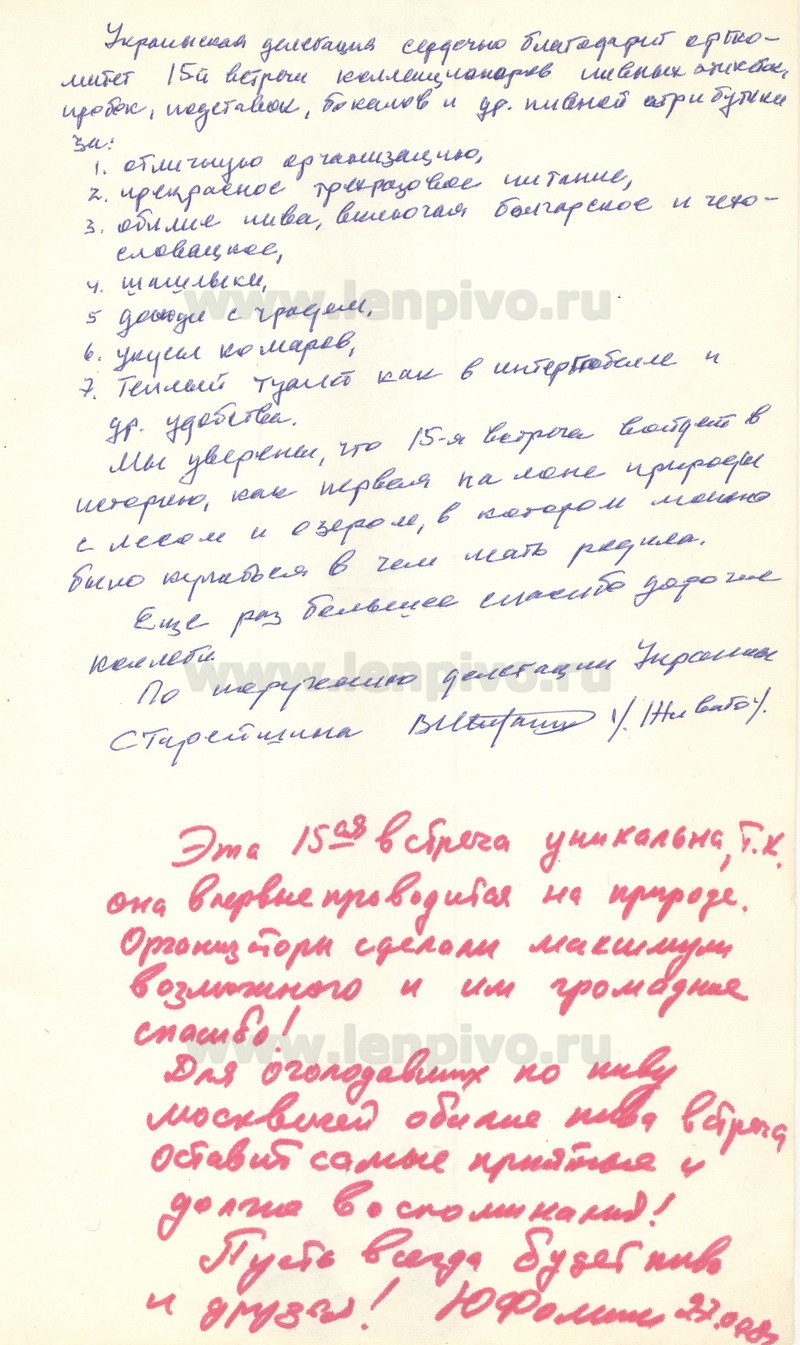 Украинская делегация сердечно благодарит оргко-
митет 15й встречи коллекционеров пивных этикеток,
пробок, подставок, бокалов и др. пивной атрибутики
за:
1. отличную организацию,
2. прекрасное трехразовое питание,
3. обилие пива, включая болгарское и чехо-
словацкое,
4. шашлыки,
www.lenpivo.ru
5 дожди с градом,
6. укусы комаров,
7. Теплый туалет как в интеротеле и
др. удобства.
Мы уверены, что 15-я встреча войдет в
историю, как первая на лоне природы
с лесом и озером, в котором можно
было купаться в чем мать родила.
Еще раз большое спасибо дорогие
коллеги.
www.lenpivo.ru
По поручению делегации Украины
Старейшина
Эта 15ая встреча уникальна, т.к.
она впервые проводится на природе.
Организторы сделали максимум
возможного и им громадное
спасибо!
www.lenpivo.ru
Для оголодавших по пиву
москвичей обилие пива встреча
оставит самые приятные и
долгие воспоминания!
Пусть всегда будет пиво
и друзья! ЮФомин